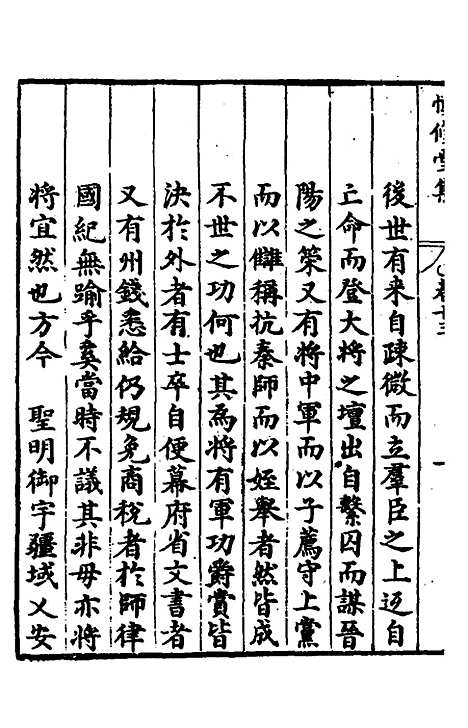 後世有来自疎微而立羣臣之上逃自
亡命而登大将之壇出自繫囚而謀晉
陽之策又有将中軍而以子薦守上黨
而以讎稱抗秦師而以姪舉者然皆成
不世之功何也其為将有軍功爵賞皆
決於外者有士卒自便幕府省文書者
又有州錢悉給仍規免商稅者於師律
國紀無踰乎奚當時不議其非毋亦将
将宜然也方今　聖明御宇疆域乂安